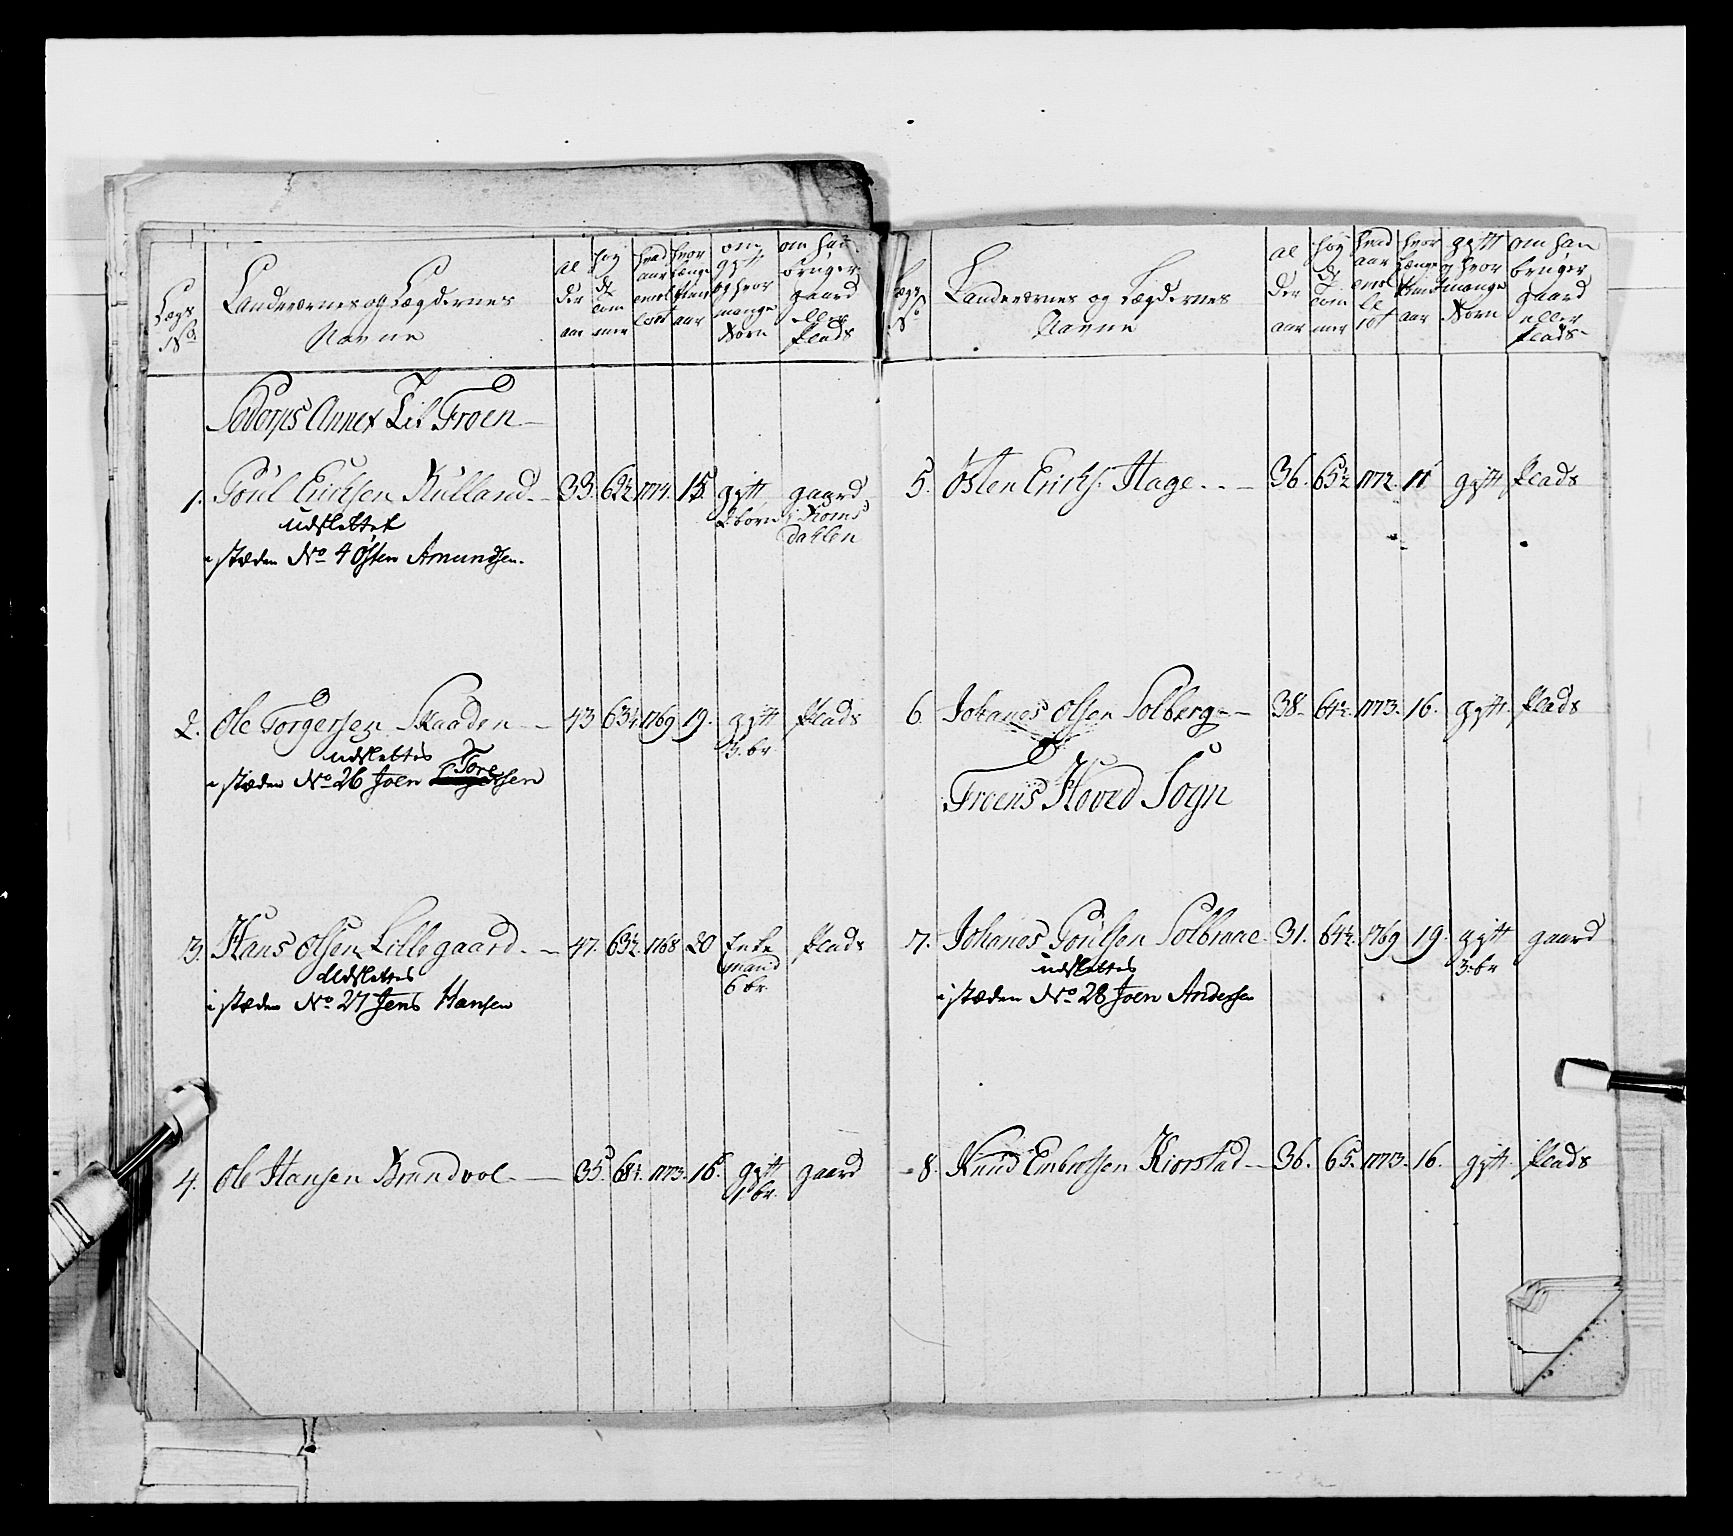 Lægs No
Landeværnes og Lægdernes Navne
al der aar
høy de tom mer
hvad aar enrol leret
hvor længe tient aar
om gyft og hvor mange Børn
om han bruger gaard eller Plads
Sødorps Annex Til Froen
1. Poul Erichsen Rulland 33. 62½. 1774. 15. gyft 2 børn gaard i Roms dahlen
udslettet
i stæden No 4 Østen Amundsen.
2. Ole Torgersen Skaaden 43. 63¼. 1769. 19. gyft 3. br Plads
udslettes
i stæden No 26 Joen Toresen
3. Hans Olsen Lillegaard. 47. 63½. 1768. 20 Enke mand 6 br Plads
udslettes
i stæden No 27 Jens Hansen
4. Ole Hansen Brandvol. 35. 68¼. 1773. 16. gyft 1. br. gaard
Lægs No
Landeværnes og Lægdernes Navne
al der aar
høy de tom mer
hvad aar enrol le ret
hvor længe tient aar
gyft og hvor mange Børn
om han bruger gaard eller Plads
5. Østen Erichs. Hage 36. 65½. 1772. 17 gyft Plads
6. Johanes Olsen Solberg 38. 64½. 1773. 16. gyft. Plads
Froens Hoved Sogn
7. Johanes Poulsen Solbraae 31. 64½. 1769. 19. gyft 3. br gaard
udslettes
i stæden No 28 Joen Andersen
8. Knud Embretsen Kiorstad 36. 65. 1773. 16. gyft. Plads